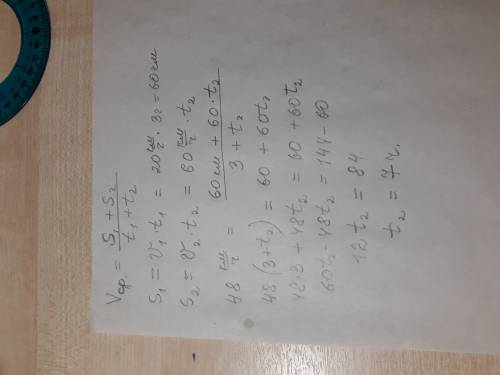 Vср. = S₁ + S₂ / t₁ + t₂
S₁ = v₁ · t₁ = 20 км/ч · 3ч = 60 км
S₂ = v₂ · t₂ = 60 км/ч · t₂
48 км/ч = 60 км + 60 · t₂ / 3 + t₂
48 (3 + t₂) = 60 + 60t₂
48·3 + 48t₂ = 60 + 60t₂
60t₂ - 48t₂ = 144 - 60
12t₂ = 84
t₂ = 7ч.